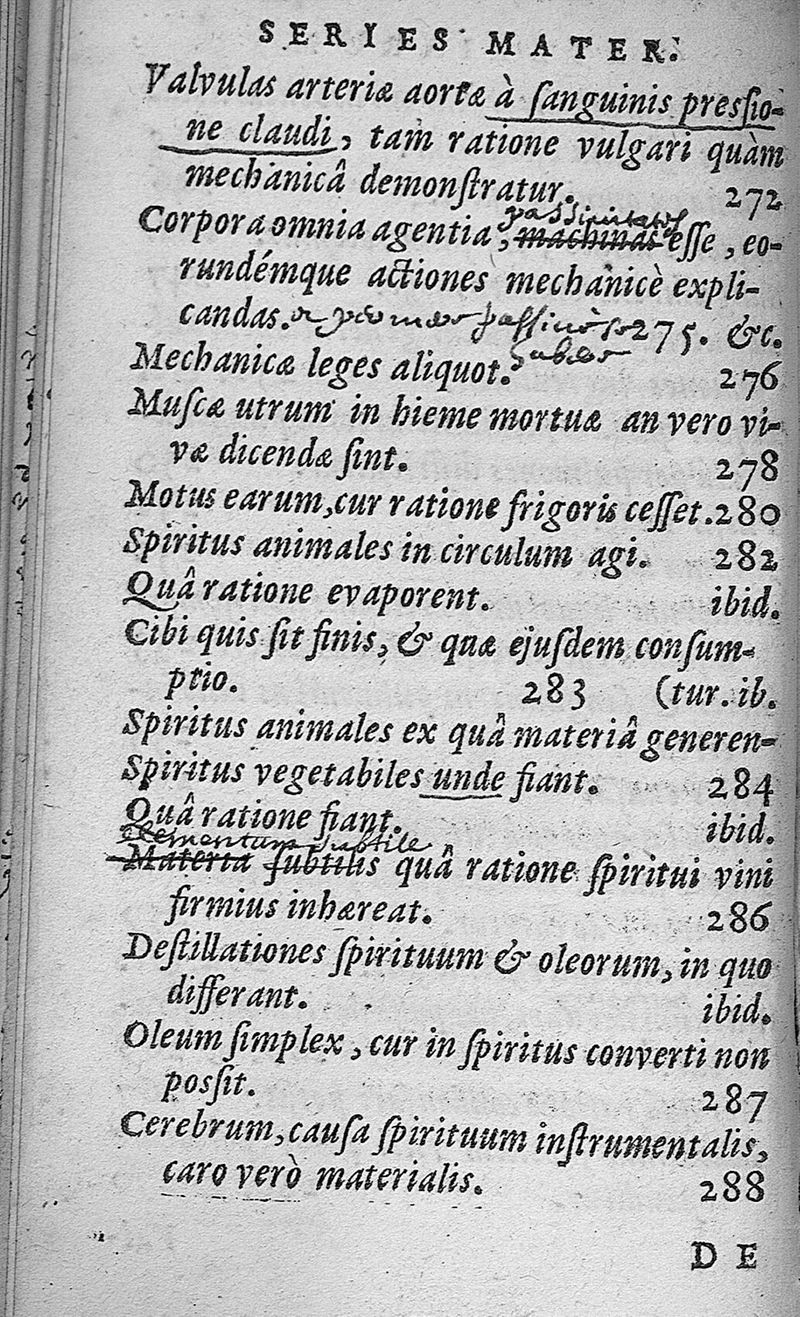 SERIES MATER.
Valvulas arteriæ aortæ à ſanguinis preſſio-
ne claudi, tam ratione vulgari quàm
mechanicâ demonſtratur. 272
Corpora omnia agentia, machinas eſſe, eo-
rundémque actiones mechanicè expli-
candas. 275. &c.
Mechanicæ leges aliquot. 276
Muſcæ utrum in hieme mortuæ an vero vi-
væ dicendæ ſint. 278
Motus earum, cur ratione frigoris ceſſet. 280
Spiritus animales in circulum agi. 282
Quâ ratione evaporent. ibid.
Cibi quis ſit finis, & quæ ejuſdem conſum-
ptio. 283 (tur. ib.
Spiritus animales ex quâ materiâ generen-
Spiritus vegetabiles unde fiant. 284
Quâ ratione fiant. ibid.
elementum subtile
Materia ſubtilis quâ ratione ſpiritui vini
firmius inhæreat. 286
Deſtillationes ſpirituum & oleorum, in quo
differant. ibid.
Oleum ſimplex, cur in ſpiritus converti non
poſſit. 287
Cerebrum, cauſa ſpirituum inſtrumentalis,
caro verò materialis. 288
DE